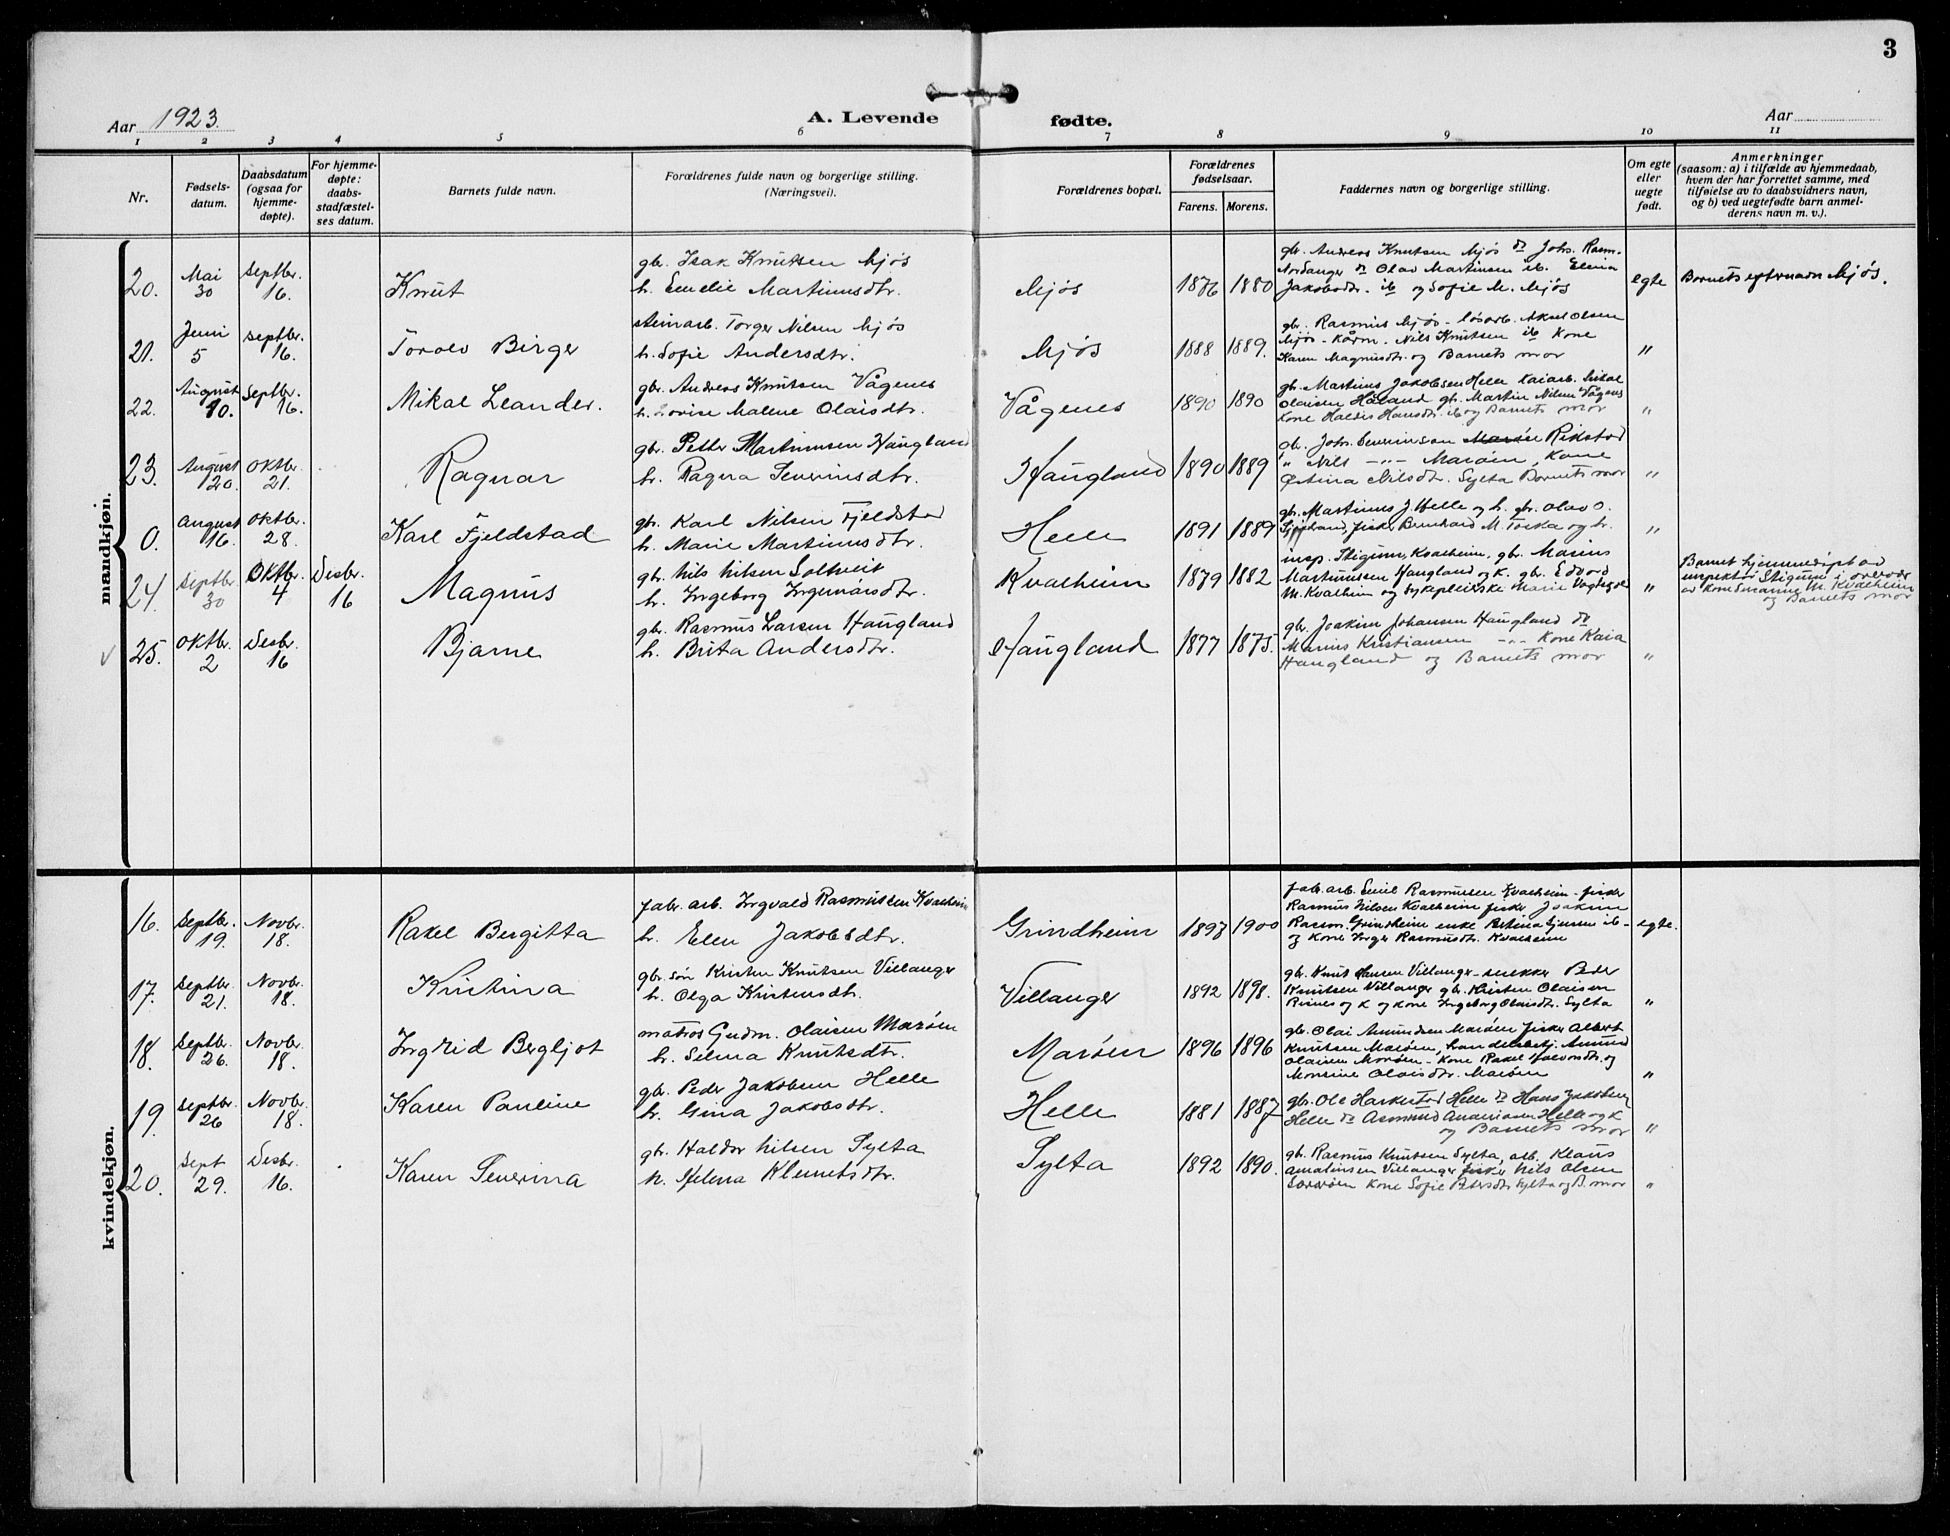 3
Aar 1923.
A. Levende fødte.
Aar
1 2 3 4 5 6 7 8 9 10 11
Nr.
Fødsels-
datum.
Daabsdatum
(ogsaa for
hjemme-
døpte).
For hjemme-
døpte:
daabs-
stadfæstel-
ses datum.
Barnets fulde navn.
Forældrenes fulde navn og borgerlige stilling.
(Næringsvei).
Forældrenes bopæl.
Forældrenes
fødselsaar.
Farens. Morens.
Faddernes navn og borgerlige stilling.
Om egte
eller
uegte
født.
Anmerkninger
(saasom: a) i tilfælde av hjemmedaab,
hvem der har forrettet samme, med
tilføielse av to daabsvidners navn,
og b) ved uegtefødte barn anmel-
derens navn m. v.).
mandkjøn.
20. Mai 30 Septbr. 16. Knut
gbr. Isak Knutsen Mjøs
h. Emelie Martinusdtr.
Mjøs 1876 1880
gbr. Andreas Knutsen Mjøs do Johs. Rasm.
Nordanger do Olav Martinsen ib. Elina
Jakobsdtr. ib og Sofie M. Mjøs
egte Barnets efternavn Mjøs.
21. Juni 5 Septbr. 16. Torolv Birger
stenarb. Torger Nilsen Mjøs
h. Sofie Andersdtr.
Mjøs 1888 1889.
gbr. Rasmus Mjøs - løsarb. Aksel Olsen
Mjøs - kårm. Nils Knutsen ib Kone
Karen Magnusdtr. og Barnets mor
"
22. August 10. Septbr. 16. Mikal Leander.
gbr. Andreas Knutsen Vågenes
h. Lovise Malene Olaisdtr.
Vågenes 1890 1890
gbr. Martinus Jakobsen Helle
Olaisen Høland gbr. Martin Nilsen Vågenes
Kone Haldis Hansdtr. ib og Barnets mor
"
23. August 20. Oktbr. 21. Ragnar
gbr. Petter Martinussen Haugland
h. Ragna Severinsdtr.
Haugland 1890 1889
Johs. Severinsen Rikstad
" Nils -"- Marøen, Kone
Østina Nilsdtr. Sylta Barnets mor
"
0. August 16. Oktbr. 28. Karl Fjeldstad
gbr. Karl Nilsen Fjeldstad
h. Marie Martinusdtr.
Helle 1891 1889
gbr. Martinus J. Helle og h. gbr. Olav O.
fisker Bernhard M. Toska og h.
"
24. Septbr. 30 Oktbr. 4 Desbr. 16 Magnus
gbr. Nils Nilsen Soltveit
h. Ingeborg Ingemarsdtr.
Kvalheim 1879 1882
insp. Stigum, Kvalheim, gbr. Marius
Martinussen Haugland og K. gbr. Edvard
M. Kvalheim og sykepleierske Marie
"
Barnet hjemmedøpt av
inspektør Stigum i overvær
av Kone Susanne M. Kvalheim
og Barnets mor
25. Oktbr. 2 Desbr. 16 Bjarne
gbr. Rasmus Larsen Haugland
h. Brita Andersdtr.
Haugland 1877 1875.
gbr. Joakim Johansen Haugland do
Marius Kristiansen -"- Kone Kaia
Haugland og Barnets mor
"
kvindekjøn.
16. Septbr. 19. Novbr. 18. Rakel Bergitta
fabr. arb. Ingvald Rasmussen Kvalheim
h. Elen Jakobsdtr.
Grindheim 1897 1900
fabr. arb. Emil Rasmussen Kvalheim - fisker
Rasmus Nilsen Kvalheim fisker Joakim
Rasm. Grindheim enke ib -
og Kone Inger Rasmusdtr. Kvalheim
egte.
17. Septbr. 21. Novbr. 18. Kristina
gbr. søn Kristen Knutsen Villanger
h. Olga Kristensdtr.
Villanger 1892 1898.
gbr. Knut Hansen Villanger - snekker Peder
Knutsen Villanger gbr. Kristen Olaisen
og K og Kone Ingeborg Olaisdtr. Sylta
"
18. Septbr. 26. Novbr. 18. Ingrid Bergljot
matros Gudm. Olaisen Marøen
h. Selma Knutsdtr.
Marøen 1896 1896
gbr. Olai Amundsen Marøen fisker Albert
Knutsen Marøen, handelsbetj. Amund
Olaisen Marøen - Kone Rakel og
Monsine Olaisdtr. Marøen
"
19. Septbr. 26 Novbr. 18. Karen Pauline
gbr. Peder Jakobsen Helle
h. Gina Jakobsdtr.
Helle 1881 1887
gbr. Ole Harkestad Helle do Hans Jakobsen
Helle do Asmund Andersen Helle og K
og Barnets mor
"
20. Sept 29. Desbr. 16. Karen Severina
gbr. Haldor Nilsen Sylta
h. Helena Klemetsdtr.
Sylta 1892 1890.
gbr. Rasmus Knutsen Sylta, arb. Klaus
Villanger fisker Nils Olsen
Kone Sofie Petersdtr Sylta og B. mor
"